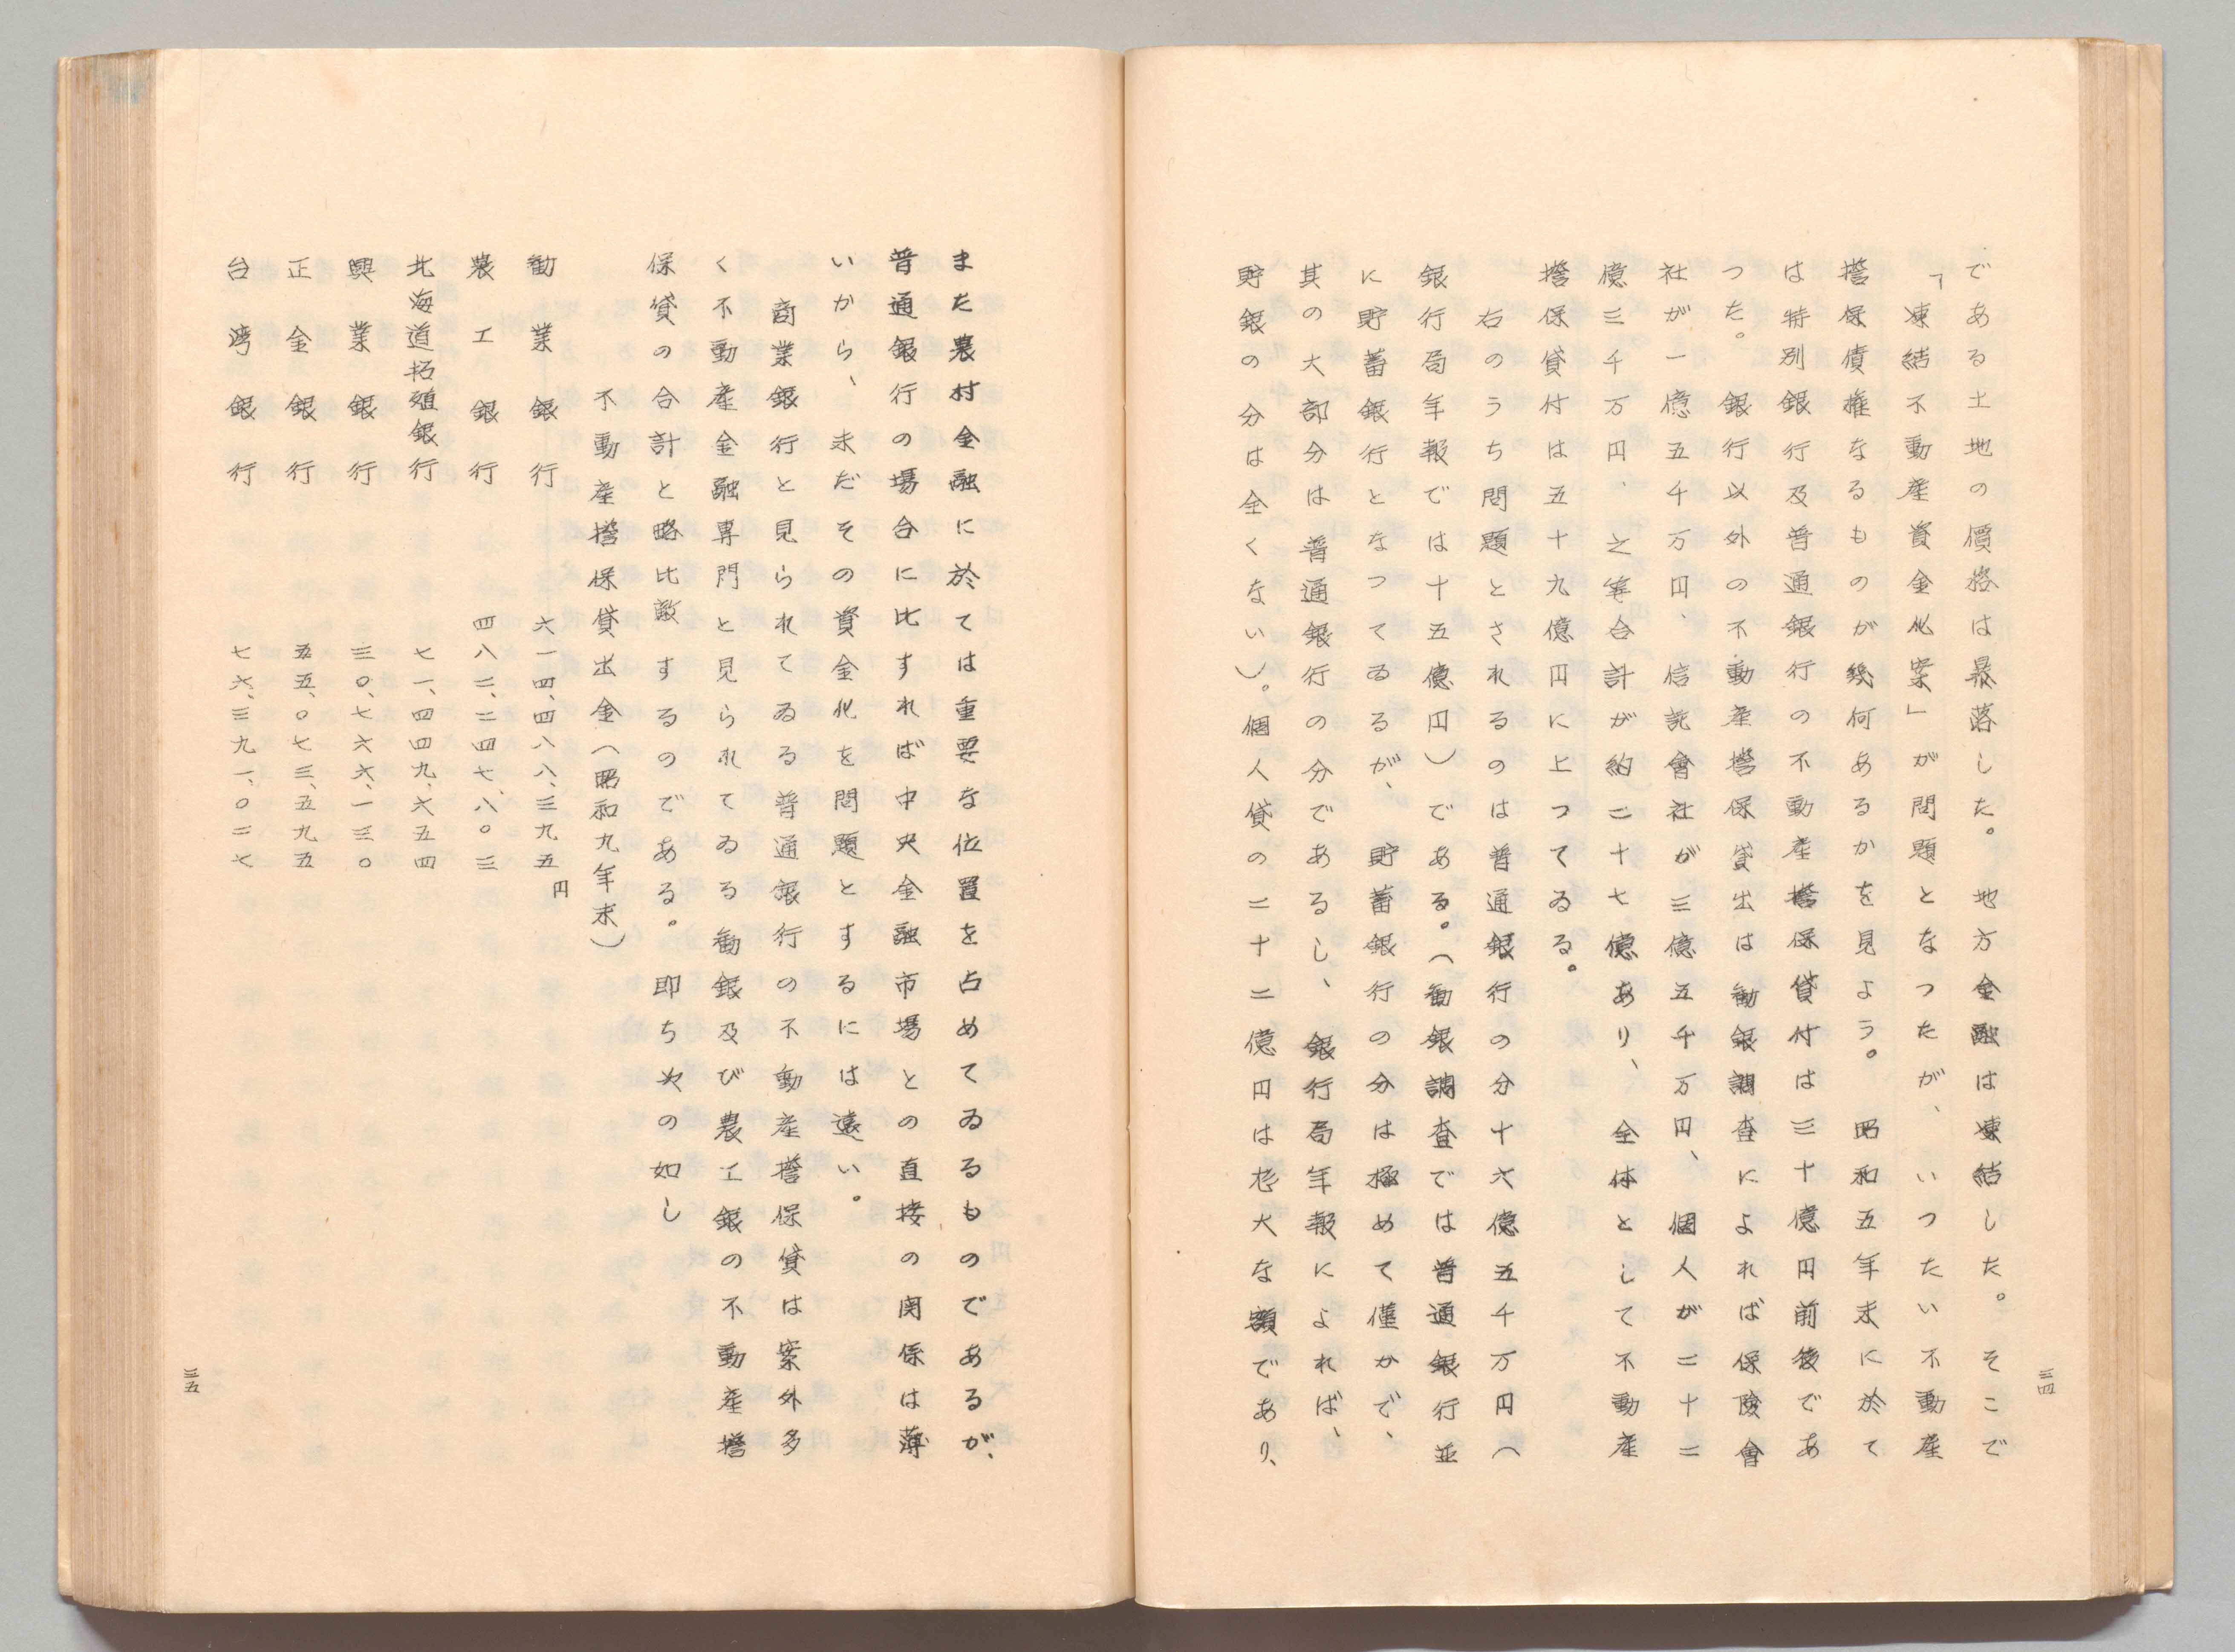 である土地の價格は暴落した。地方金融は凍結した。そこで
「凍結不動産資金化案」が問題となつたが、いつたい不動産
擔保債権なるものが幾何あるかを見よう。昭和五年末に於て
は特別銀行及普通銀行の不動産擔保貸付は三十億円前後であ
つた。銀行以外の不動産擔保貸出は勧銀調査によれば保険會
社が一億五千万円、信託會社が三億五千万円、個人が二十二
億三千万円、之等合計が約二十七億あり、全体として不動産
擔保貸付は五十九億円に上つてゐる。
右のうち問題とされるのは普通銀行の分十六億五千万円（
銀行局年報では十五億円）である。（勧銀調査では普通銀行並
に貯蓄銀行となつてゐるが、貯蓄銀行の分は極めて僅かで、
其の大部分は普通銀行の分であるし、銀行局年報によれば、
貯銀の分は全くない）。個人貸の二十二億円は尨大な額であり、
三四
また農村金融に於ては重要な位置を占めてゐるものであるが、
普通銀行の場合に比すれば中央金融市場との直接の関係は薄
いから、未だその資金化を問題とするには遠い。
商業銀行と見られてゐる普通銀行の不動産擔保貸は案外多
く不動産金融専門と見られてゐる勧銀及び農工銀の不動産擔
保貸の合計と略比敵するのである。即ち次の如し
不動産擔保貸出金（昭和九年末）
勧業銀行　六一四、四八八、三九五円
農工銀行　四八三、二四七、八〇三
北海道拓殖銀行　七一、四四九、六五四
興業銀行　三〇、七六六、一三〇
正金銀行　五五、〇七三、五九五
台湾銀行　七六、三九一、〇二七
三五